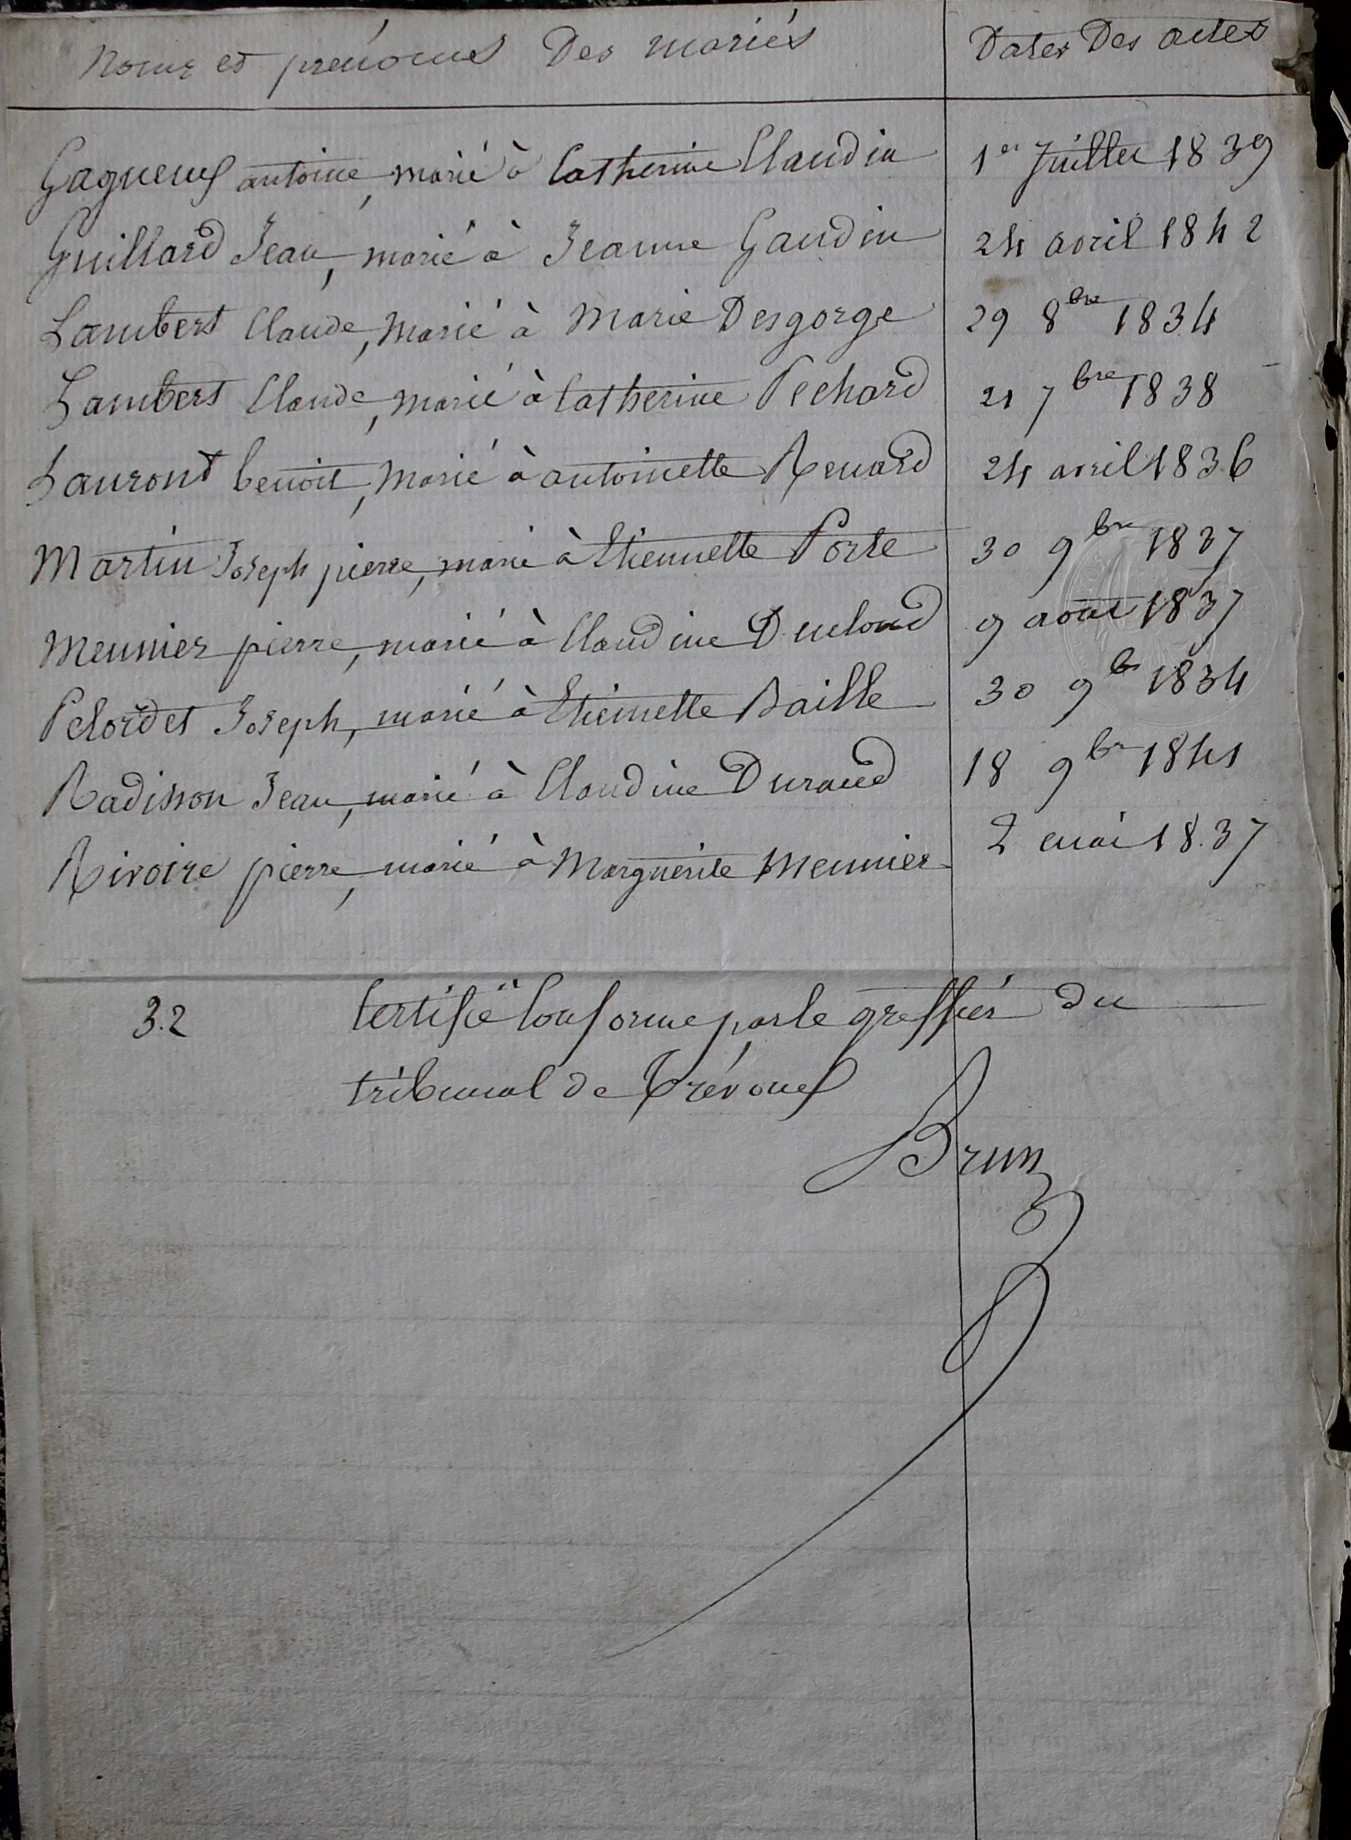 Noms et prénoms Des mariés Dates Des actes
Gagneux antoine, marié à Catherine Claudin 1er Juillet 1839
Guillard Jean, marié à Jeanne Gaudin 24 avril 1842
Lambert Claude, marié à Marie Desgorge 29 8bre 1834
Lambert Claude, marié à Catherine Pechard 21 7bre 1838
Lauront benoit, marié à antoinette Renard 24 avril 1836
Martin Joseph pierre, marié à Etiennette Porte 30 9bre 1837
Meunier pierre, marié à Claudine Ducloud 9 août 1837
Pelordet Joseph, marié à Etiennette Baille 30 9bre 1834
Radisson Jean, marié à Claudine Durand 18 9bre 1841
Rivoire pierre, marié à Marguerite Meunier 2 mai 1837
32 Certifié Conforme par le greffier du
tribunal de Trévoux
Brun